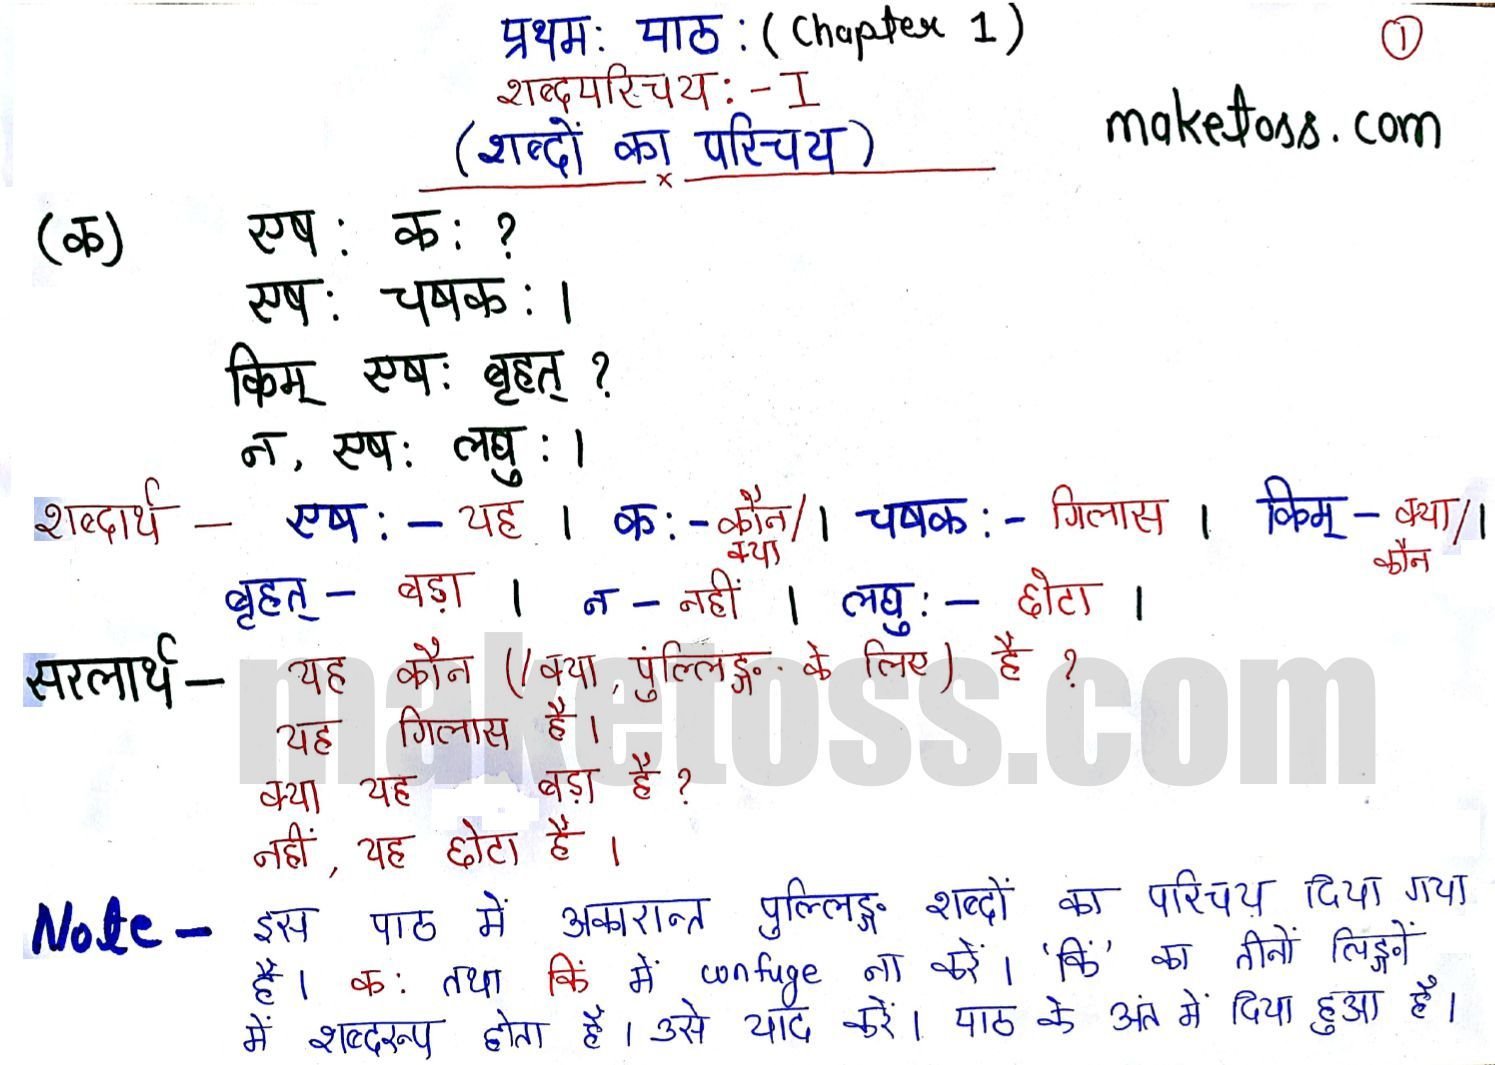 प्रथमः पाठः (Chapter 1)
①
शब्दपरिचयः - I
maketoss.com
(शब्दों का परिचय)
x
(क) एषः कः ?
एषः चषकः ।
किम् एषः बृहत् ?
न, एषः लघुः ।
शब्दार्थ – एषः – यह । कः - कौन/क्या । चषकः - गिलास । किम् – क्या/कौन ।
बृहत् – बड़ा । न – नहीं । लघुः – छोटा ।
सरलार्थ – यह कौन (/क्या, पुंल्लिङ्ग के लिए) है ?
यह गिलास है ।
maketoss.com
क्या यह बड़ा है ?
नहीं, यह छोटा है ।
Note – इस पाठ में अकारान्त पुल्लिङ्ग शब्दों का परिचय दिया गया
है । कः तथा किं में confuge ना करें । 'किं' का तीनों लिङ्गों
में शब्दरूप होता है । उसे याद करें । पाठ के अंत में दिया हुआ है ।